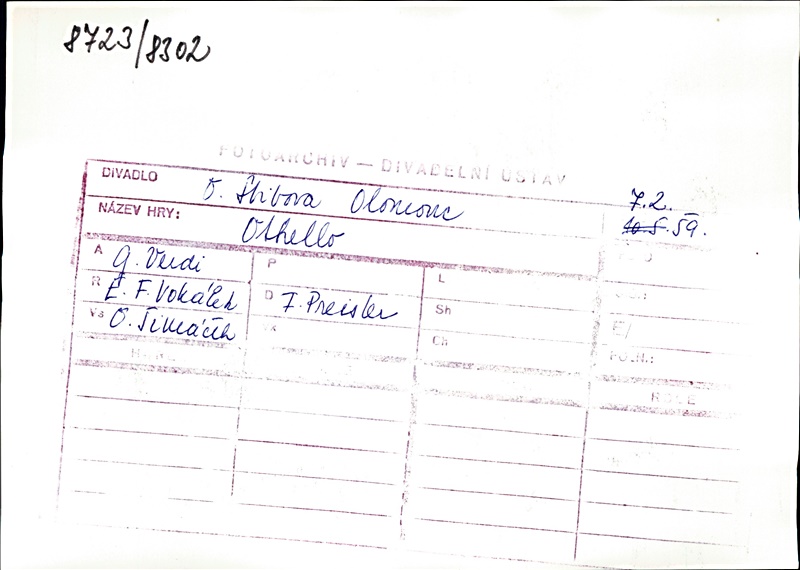 8723/8302
FOTOARCHIV — DIVADELNÍ ÚSTAV
DIVADLO O. Stibora Olomouc
7.2.
10.5.59.
NÁZEV HRY: Othello
A G. Verdi P L
R E. F. Vokálek D F. Preisler Sh
Vs O. Šimáček Vk Ch
E/
POZN.:
ROLE